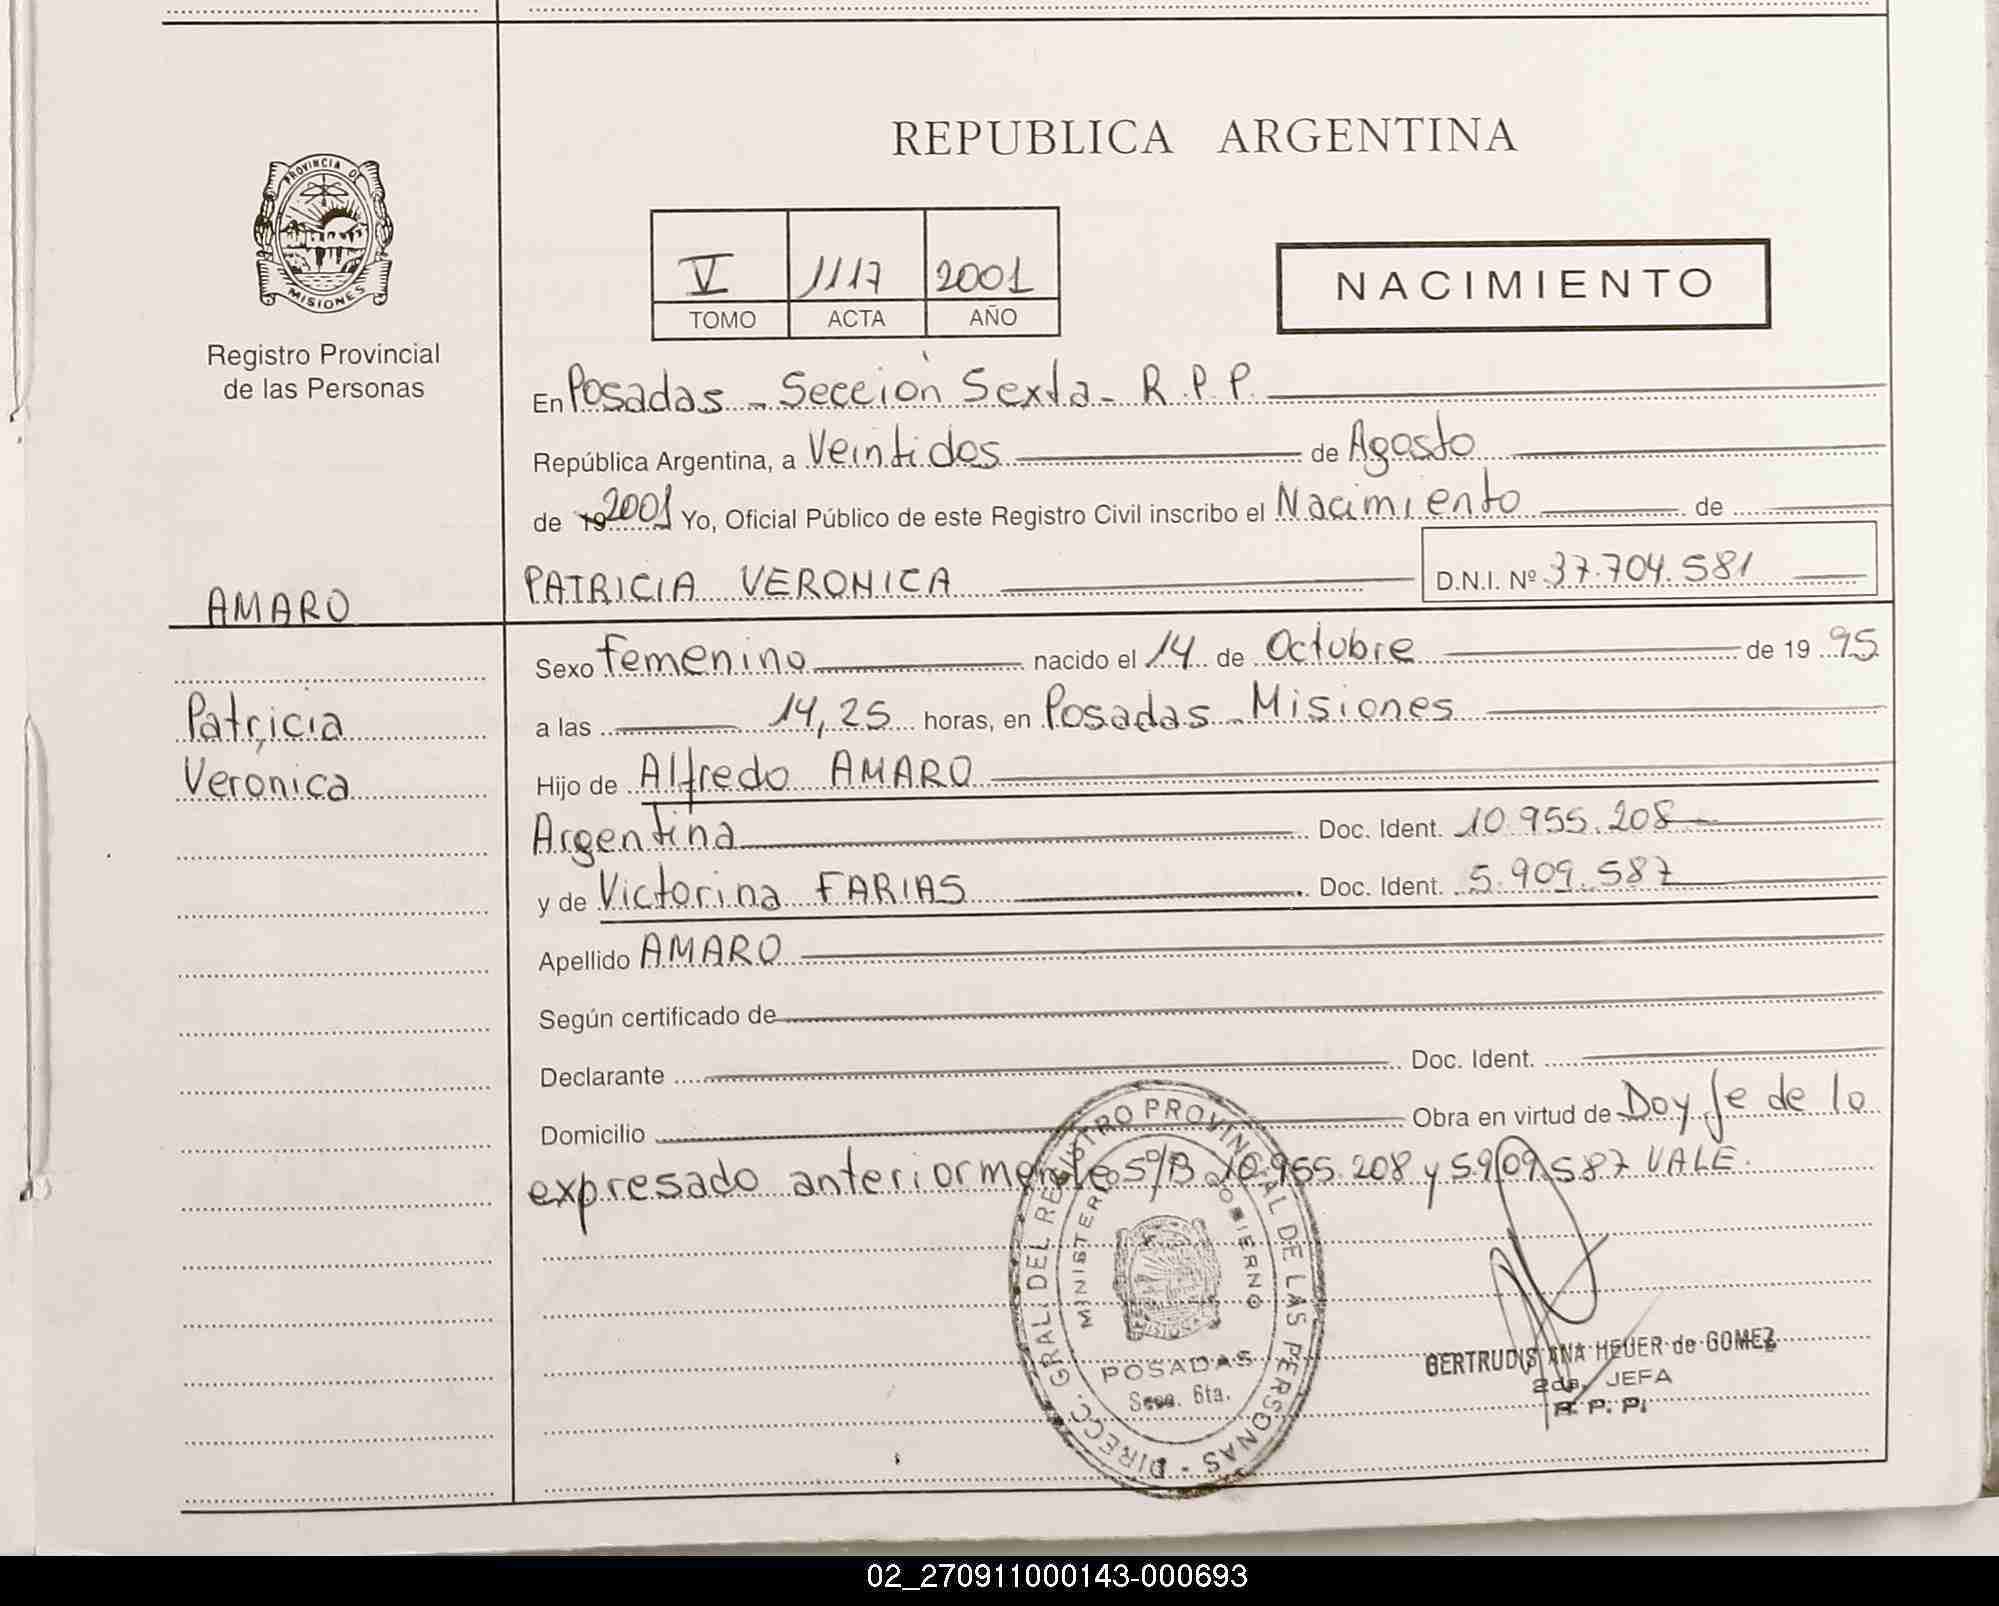 REPUBLICA ARGENTINA
PROVINCIA DE
MISIONES
Registro Provincial
de las Personas
V 1117 2001
TOMO ACTA AÑO
NACIMIENTO
En Posadas - Sección Sexta - R.P.P.
República Argentina, a Veintidos de Agosto
de 19 2001 Yo, Oficial Público de este Registro Civil inscribo el Nacimiento de
AMARO
PATRICIA VERONICA D.N.I. Nº 37.704.581
Sexo femenino nacido el 14 de Octubre de 19 95
Patricia
Veronica
a las 14,25 horas, en Posadas - Misiones
Hijo de Alfredo AMARO
Argentina Doc. Ident. 10.955.208
y de Victorina FARIAS Doc. Ident. 5.909.587
Apellido AMARO
Según certificado de
Declarante Doc. Ident.
Domicilio Obra en virtud de Doy fe de lo
expresado anteriormente S/B 10.955.208 y 5.909.587 VALE.
DIRECC. GRAL. DEL REGISTRO PROVINCIAL DE LAS PERSONAS -
MINISTERIO GOBIERNO
MISIONES
POSADAS
Secc. 6ta.
GERTRUDIS ANA HEUER de GOMEZ
2da. JEFA
R. P. P.
02_270911000143-000693